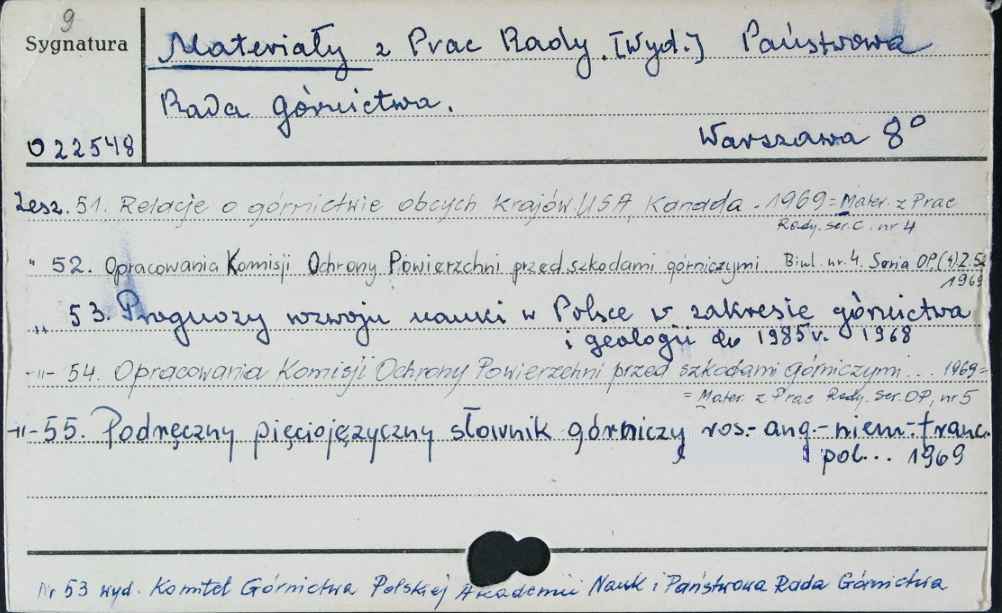 9
Sygnatura
Materiały z Prac Rady. [Wyd.] Państwowa
Rada Górnictwa.
022548
Warszawa 8°
Zesz. 51. Relacje o górnictwie obcych krajów. USA, Kanada. 1969 = Mater. z Prac
Rady. Ser. C. nr 4
" 52. Opracowania Komisji Ochrony Powierzchni przed szkodami górniczymi Biul. nr 4. Seria OP, (4) Z. 52
1969
" 53. Prognozy rozwoju nauki w Polsce w zakresie górnictwa
i geologii do 1985 r. 1968
-"- 54. Opracowania Komisji Ochrony Powierzchni przed szkodami górniczymi... 1969=
= Mater. z Prac Rady. Ser. OP, nr 5
-"- 55. Podręczny pięciojęzyczny słownik górniczy ros.- ang.- niem.- franc.
pol... 1969
Nr 53 wyd. Komitet Górnictwa Polskiej Akademii Nauk i Państwowa Rada Górnictwa